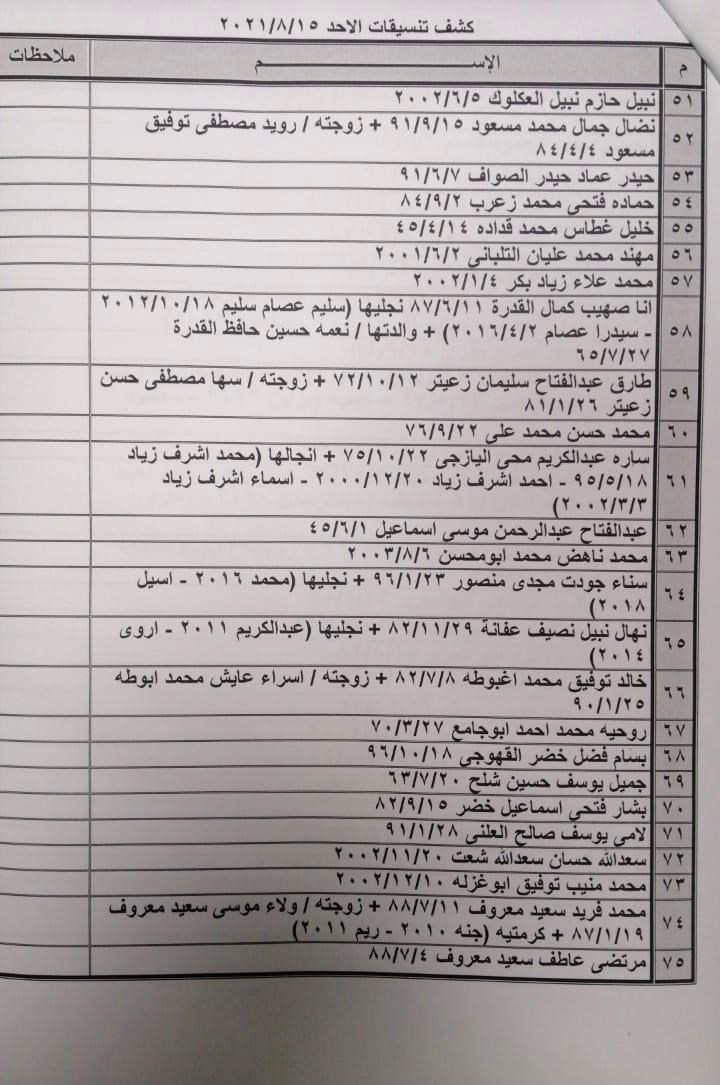 كشف تنسيقات الاحد ٢٠٢١/٨/١٥
م الإســـــــــم ملاحظات
٥١ نبيل حازم نبيل العكلوك ٢٠٠٢/٦/٥
٥٢ نضال جمال محمد مسعود ٩١/٩/١٥ + زوجته / رويد مصطفى توفيق
مسعود ٨٤/٤/٤
٥٣ حيدر عماد حيدر الصواف ٩١/٦/٧
٥٤ حماده فتحى محمد زعرب ٨٤/٩/٢
٥٥ خليل غطاس محمد قداده ٤٥/٤/١٤
٥٦ مهند محمد عليان التلبانى ٢٠٠١/٦/٢
٥٧ محمد علاء زياد بكر ٢٠٠٢/١/٤
٥٨ انا صهيب كمال القدرة ٨٧/٦/١١ نجليها (سليم عصام سليم ٢٠١٢/١٠/١٨
- سيدرا عصام ٢٠١٦/٤/٢) + والدتها / نعمه حسين حافظ القدرة
٦٥/٧/٢٧
٥٩ طارق عبدالفتاح سليمان زعيتر ٧٢/١٠/١٢ + زوجته / سها مصطفى حسن
زعيتر ٨١/١/٢٦
٦٠ محمد حسن محمد على ٧٦/٩/٢٢
٦١ ساره عبدالكريم محى اليازجى ٧٥/١٠/٢٢ + انجالها (محمد اشرف زياد
٩٥/٥/١٨ - احمد اشرف زياد ٢٠٠٠/١٢/٢٠ - اسماء اشرف زياد
٢٠٠٢/٣/٣)
٦٢ عبدالفتاح عبدالرحمن موسى اسماعيل ٤٥/٦/١
٦٣ محمد ناهض محمد ابومحسن ٢٠٠٣/٨/٦
٦٤ سناء جودت مجدى منصور ٩٦/١/٢٣ + نجليها (محمد ٢٠١٦ - اسيل
٢٠١٨)
٦٥ نهال نبيل نصيف عفانة ٨٢/١١/٢٩ + نجليها (عبدالكريم ٢٠١١ - اروى
٢٠١٤)
٦٦ خالد توفيق محمد اغبوطه ٨٢/٧/٨ + زوجته / اسراء عايش محمد ابوطه
٩٠/١/٢٥
٦٧ روحيه محمد احمد ابوجامع ٧٠/٣/٢٧
٦٨ بسام فضل خضر القهوجي ٩٦/١٠/١٨
٦٩ جميل يوسف حسين شلح ٦٣/٧/٢٠
٧٠ بشار فتحى اسماعيل خضر ٨٢/٩/١٥
٧١ لامى يوسف صالح العلنى ٩١/١/٢٨
٧٢ سعدالله حسان سعدالله شعت ٢٠٠٢/١١/٢٠
٧٣ محمد منيب توفيق ابوغزله ٢٠٠٢/١٢/١٠
٧٤ محمد فريد سعيد معروف ٨٨/٧/١١ + زوجته / ولاء موسى سعيد معروف
٨٧/١/١٩ + كرمتيه (جنه ٢٠١٠ - ريم ٢٠١١)
٧٥ مرتضى عاطف سعيد معروف ٨٨/٧/٤